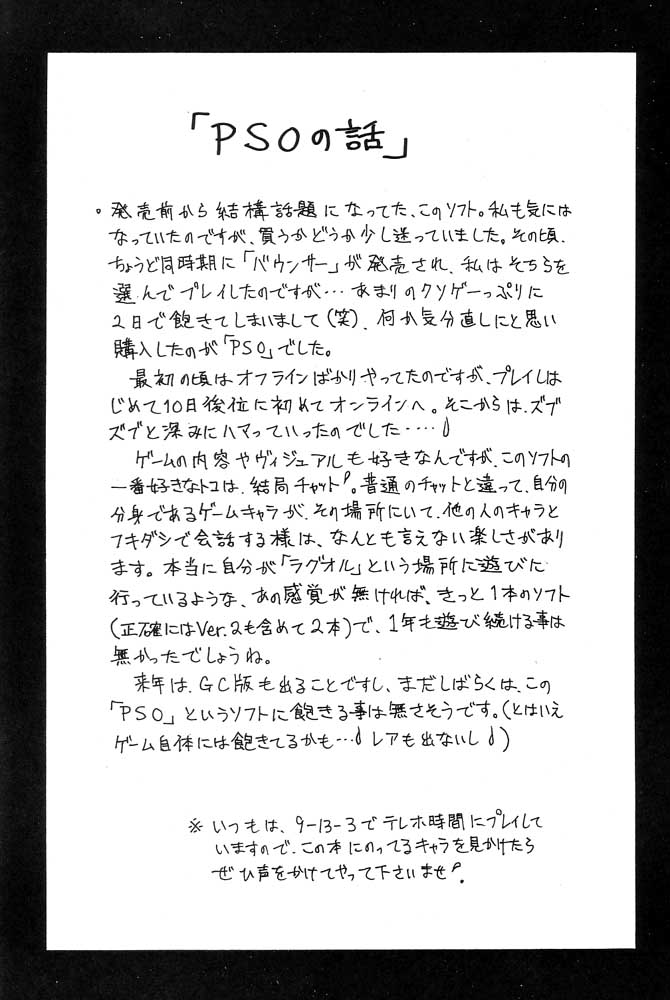 「PSOの話」
。発売前から結構話題になってた、このソフト。私も気には
なっていたのですが、買うかどうか少し迷っていました。その頃、
ちょうど同時期に「バウンサー」が発売され、私はそちらを
選んでプレイしたのですが…あまりのクソゲーっぷりに
2日で飽きてしまいまして(笑)、何か気分直しにと思い
購入したのが「PSO」でした。
最初の頃はオフラインばかりやってたのですが、プレイしは
じめて10日後位に初めてオンラインへ。そこからは、ズブ
ズブと深みにハマっていったのでした‥‥
ゲームの内容やヴィジュアルも好きなんですが、このソフトの
一番好きなトコは、結局チャット!。普通のチャットと違って、自分の
分身であるゲームキャラが、その場所にいて、他の人のキャラと
フキダシで会話する様は、なんとも言えない楽しさがあり
ます。本当に自分が「ラグオル」という場所に遊びに
行っているような、あの感覚が無ければ、きっと1本のソフト
(正確にはVer.2も含めて2本)で、1年も遊び続ける事は
無かったでしょうね。
来年は、GC版も出ることですし、まだしばらくは、この
「PSO」というソフトに飽きる事は無さそうです。(とはいえ
ゲーム自体には飽きてるかも…レアも出ないし)
※いつもは、9-13-3でテレホ時間にプレイして
いますので、この本にのってるキャラを見かけたら
ぜひ声をかけてやって下さいませ!